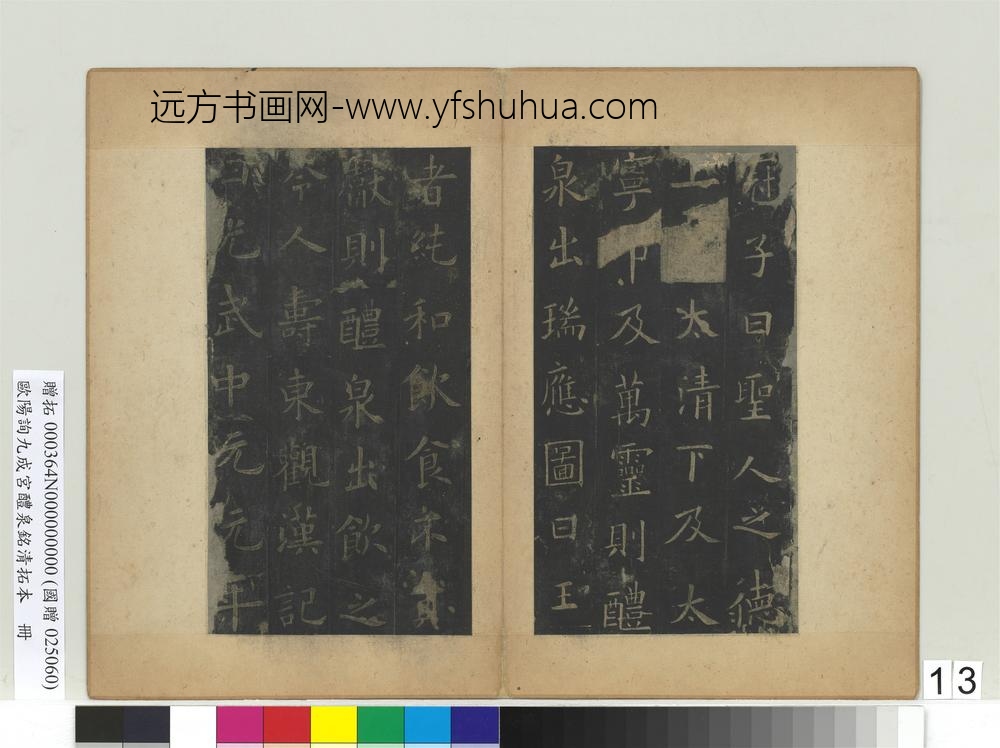 远方书画网-www.yfshuhua.com
冠子曰聖人之德
上 太清下及太
寧中及萬靈則醴
泉出瑞應圖曰王
者純和飲食不貢
獻則醴泉出飲之
令人壽東觀漢記
曰光武中元元年
贈拓 000364N000000000 (國贈 025060)
歐陽詢九成宮醴泉銘清拓本 冊
13